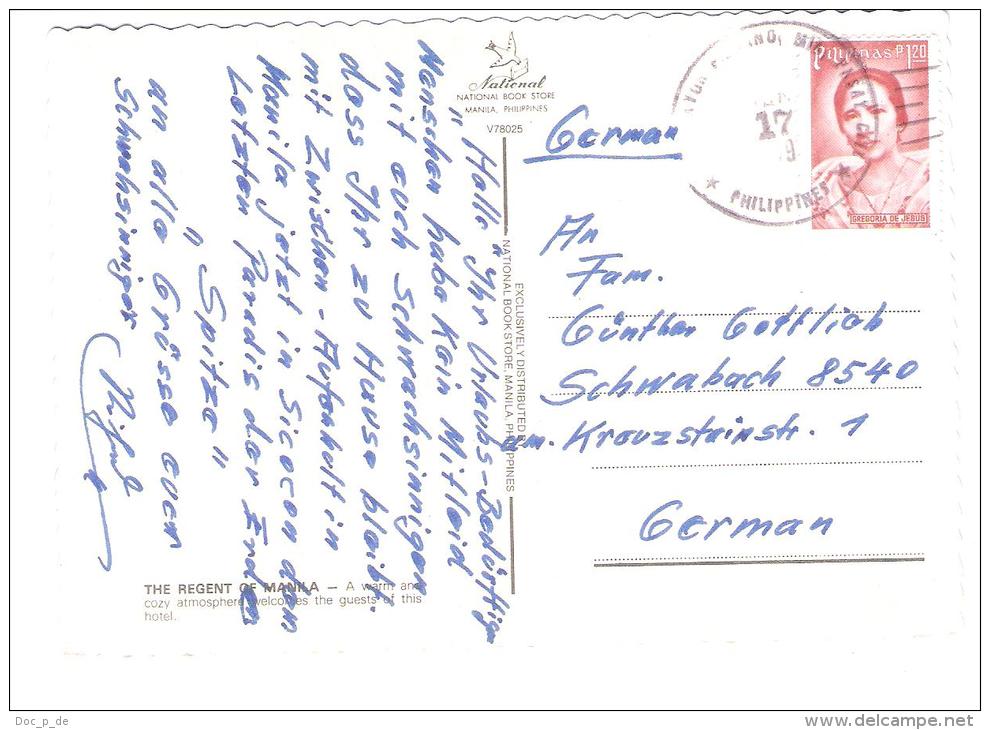 National
NATIONAL BOOK STORE
MANILA, PHILIPPINES
V78025
"Hallo" Ihr Urlaubs-Bedürftigen
Menschen habe Kein Mitleid
mit euch Schwachsinnigen
dass Ihr zu Hause bleibt.
mit Zwischen-Aufenhalt in
Manila jetzt in Sicocon dem
Letzten Paradis der Erde
"Spitze"
an alle Grüsse euer
Schwachsinniger
THE REGENT OF MANILA – A warm and
cozy atmosphere welcomes the guests of this
hotel.
EXCLUSIVELY DISTRIBUTED BY
NATIONAL BOOK STORE, MANILA, PHILIPPINES
Pilipinas P1.20
GREGORIA DE JESUS
17
PHILIPPINES
German
An
Fam.
Günther Gottlieb
Schwabach 8540
am. Kreuzsteinstr. 1
German
Doc_p_de
www.delcampe.net